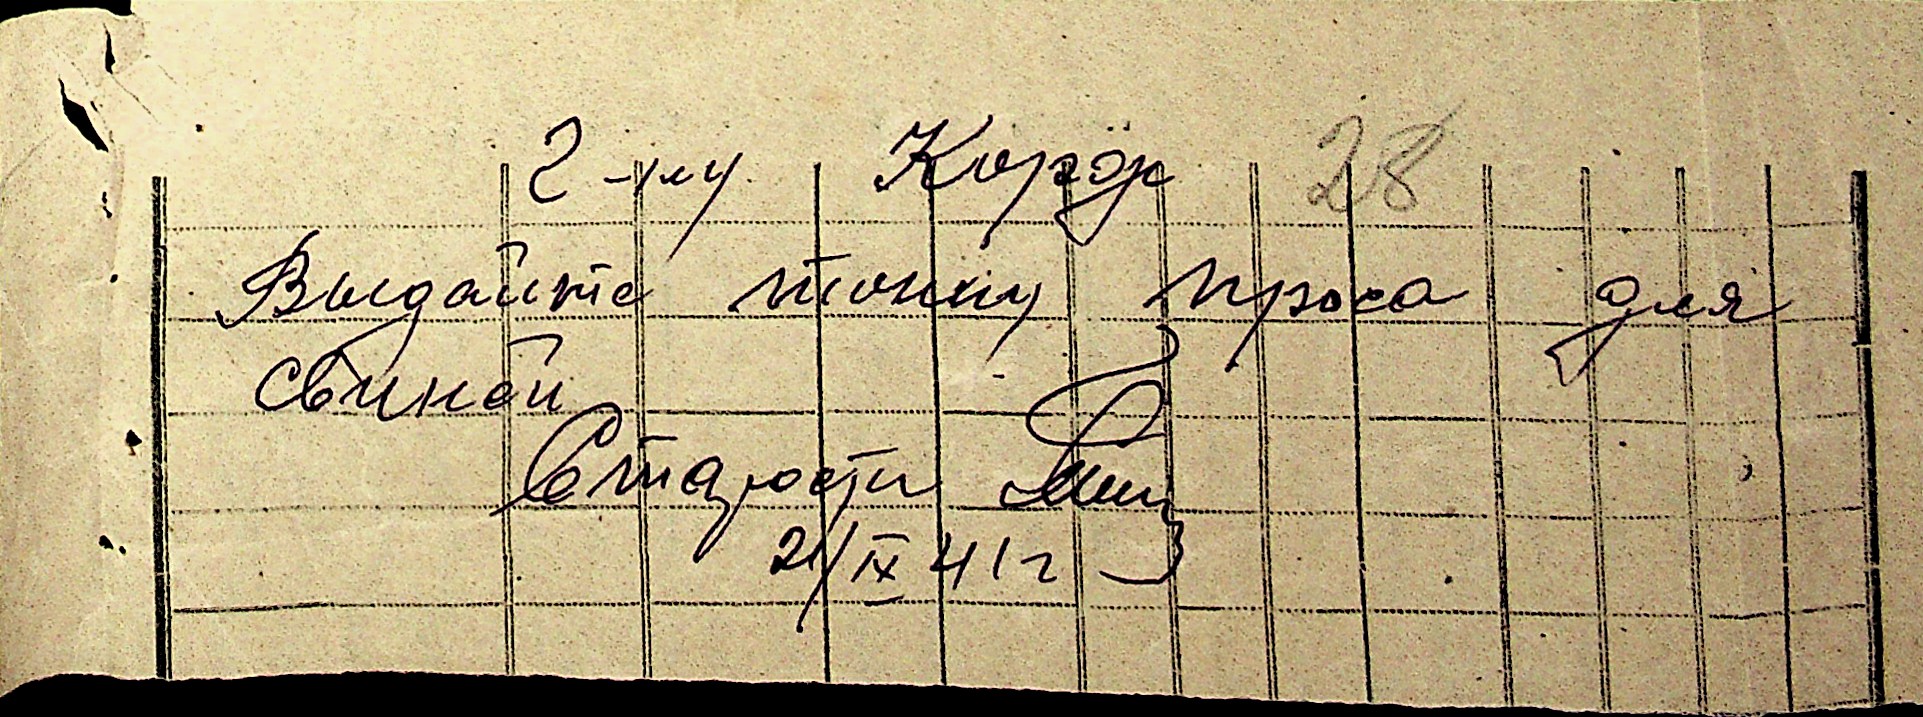 2-му 28
Выдайте тонну проса для
свиней
Старости
21/IX 41 г